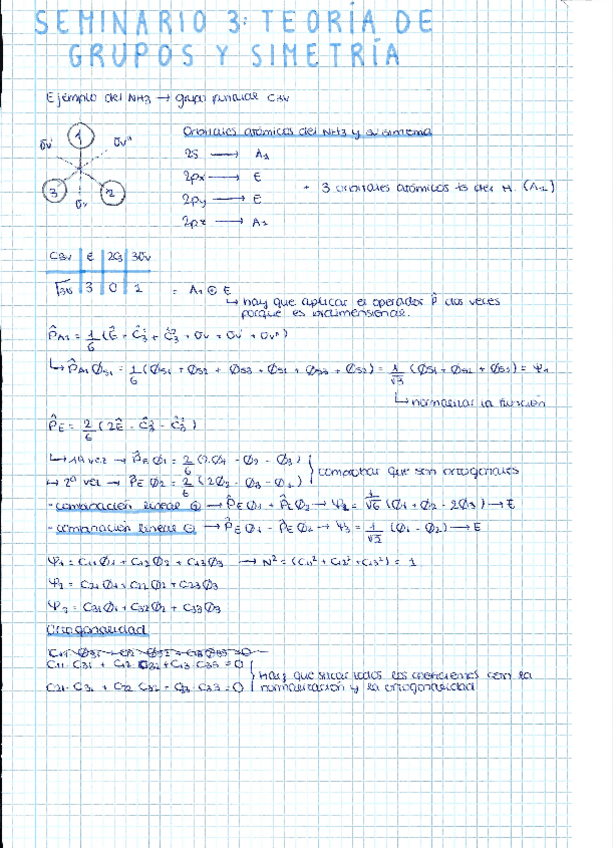 SEMINARIO 3: TEORÍA DE
GRUPOS Y SIMETRÍA
Ejemplo del NH3 → grupo puntual C3v
Orbitales atómicos del NH3 y su simetría
σv' 1 σv''
3 σv 2
2s → A1
2px → E
2py → E
2pz → A1
+ 3 orbitales atómicos 1s del H. (A1)
C3v E 2C3 3σv
Γ3σ 3 0 1 = A1 ⊕ E
↳ hay que aplicar el operador P̂ dos veces
porque es bidimensional.
P̂A1 = 1/6 (Ê + Ĉ3¹ + Ĉ3² + σv + σv' + σv'')
↳ P̂A1 ØS1 = 1/6 (ØS1 + ØS2 + ØS3 + ØS1 + ØS3 + ØS2) = 1/√3 (ØS1 + ØS2 + ØS3) = Ψ1
↳ normalizar la función
P̂E = 2/6 (2Ê - Ĉ3¹ - Ĉ3²)
↳ 1ª vez → P̂E Ø1 = 2/6 (2Ø1 - Ø2 - Ø3)
↳ 2ª vez → P̂E Ø2 = 2/6 (2Ø2 - Ø3 - Ø1)
comprobar que son ortogonales
- combinación lineal ⊕ → P̂E Ø1 + P̂E Ø2 → Ψ2 = 1/√6 (Ø1 + Ø2 - 2Ø3) → E
- combinación lineal ⊖ → P̂E Ø1 - P̂E Ø2 → Ψ3 = 1/√2 (Ø1 - Ø2) → E
Ψ1 = C11Ø1 + C12Ø2 + C13Ø3 → N² = (C11² + C12² + C13²) = 1
Ψ2 = C21Ø1 + C22Ø2 + C23Ø3
Ψ3 = C31Ø1 + C32Ø2 + C33Ø3
Ortogonalidad
C11 · C31 + C12 · C32 + C13 · C33 = 0
C21 · C31 + C22 · C32 + C23 · C33 = 0
Hay que sacar todos los coeficientes con la
normalización y la ortogonalidad